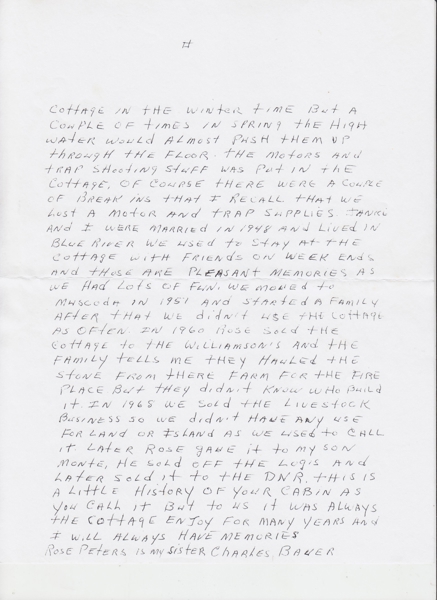 II
COTTAGE IN THE WINTER TIME BUT A
COUPLE OF TIMES IN SPRING THE HIGH
WATER WOULD ALMOST PUSH THEM UP
THROUGH THE FLOOR. THE MOTORS AND
TRAP SHOOTING STUFF WAS PUT IN THE
COTTAGE, OF COURSE THERE WERE A COUPLE
OF BREAK INS THAT I RECALL THAT WE
LOST A MOTOR AND TRAP SUPPLIES.
AND I WERE MARRIED IN 1948 AND LIVED IN
BLUE RIVER WE USED TO STAY AT THE
COTTAGE WITH FRIENDS ON WEEK ENDS
AND THOSE ARE PLEASANT MEMORIES AS
WE HAD LOTS OF FUN. WE MOVED TO
MUSCODA IN 1951 AND STARTED A FAMILY
AFTER THAT WE DIDN'T USE THE COTTAGE
AS OFTEN. IN 1960 ROSE SOLD THE
COTTAGE TO THE WILLIAMSON'S AND THE
FAMILY TELLS ME THEY HAULED THE
STONE FROM THERE FARM FOR THE FIRE
PLACE BUT THEY DIDN'T KNOW WHO BUILD
IT. IN 1968 WE SOLD THE LIVESTOCK
BUSINESS SO WE DIDN'T HAVE ANY USE
FOR LAND OR ISLAND AS WE USED TO CALL
IT. LATER ROSE GAVE IT TO MY SON
MONTE, HE SOLD OFF THE LOGS AND
LATER SOLD IT TO THE DNR. THIS IS
A LITTLE HISTORY OF YOUR CABIN AS
YOU CALL IT BUT TO US IT WAS ALWAYS
THE COTTAGE ENJOY FOR MANY YEARS AND
I WILL ALWAYS HAVE MEMORIES
ROSE PETERS IS MY SISTER CHARLES, BAUER